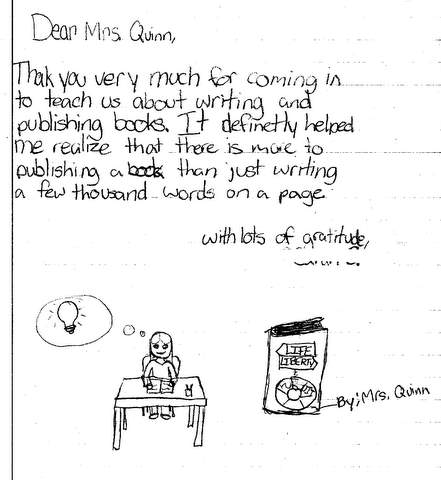 Dear Mrs. Quinn,
Thak you very much for coming in
to teach us about writing and
publishing books. It definetly helped
me realize that there is more to
publishing a book than just writing
a few thousand words on a page
with lots of gratitude,
LIFE
LIBERTY
By: Mrs. Quinn